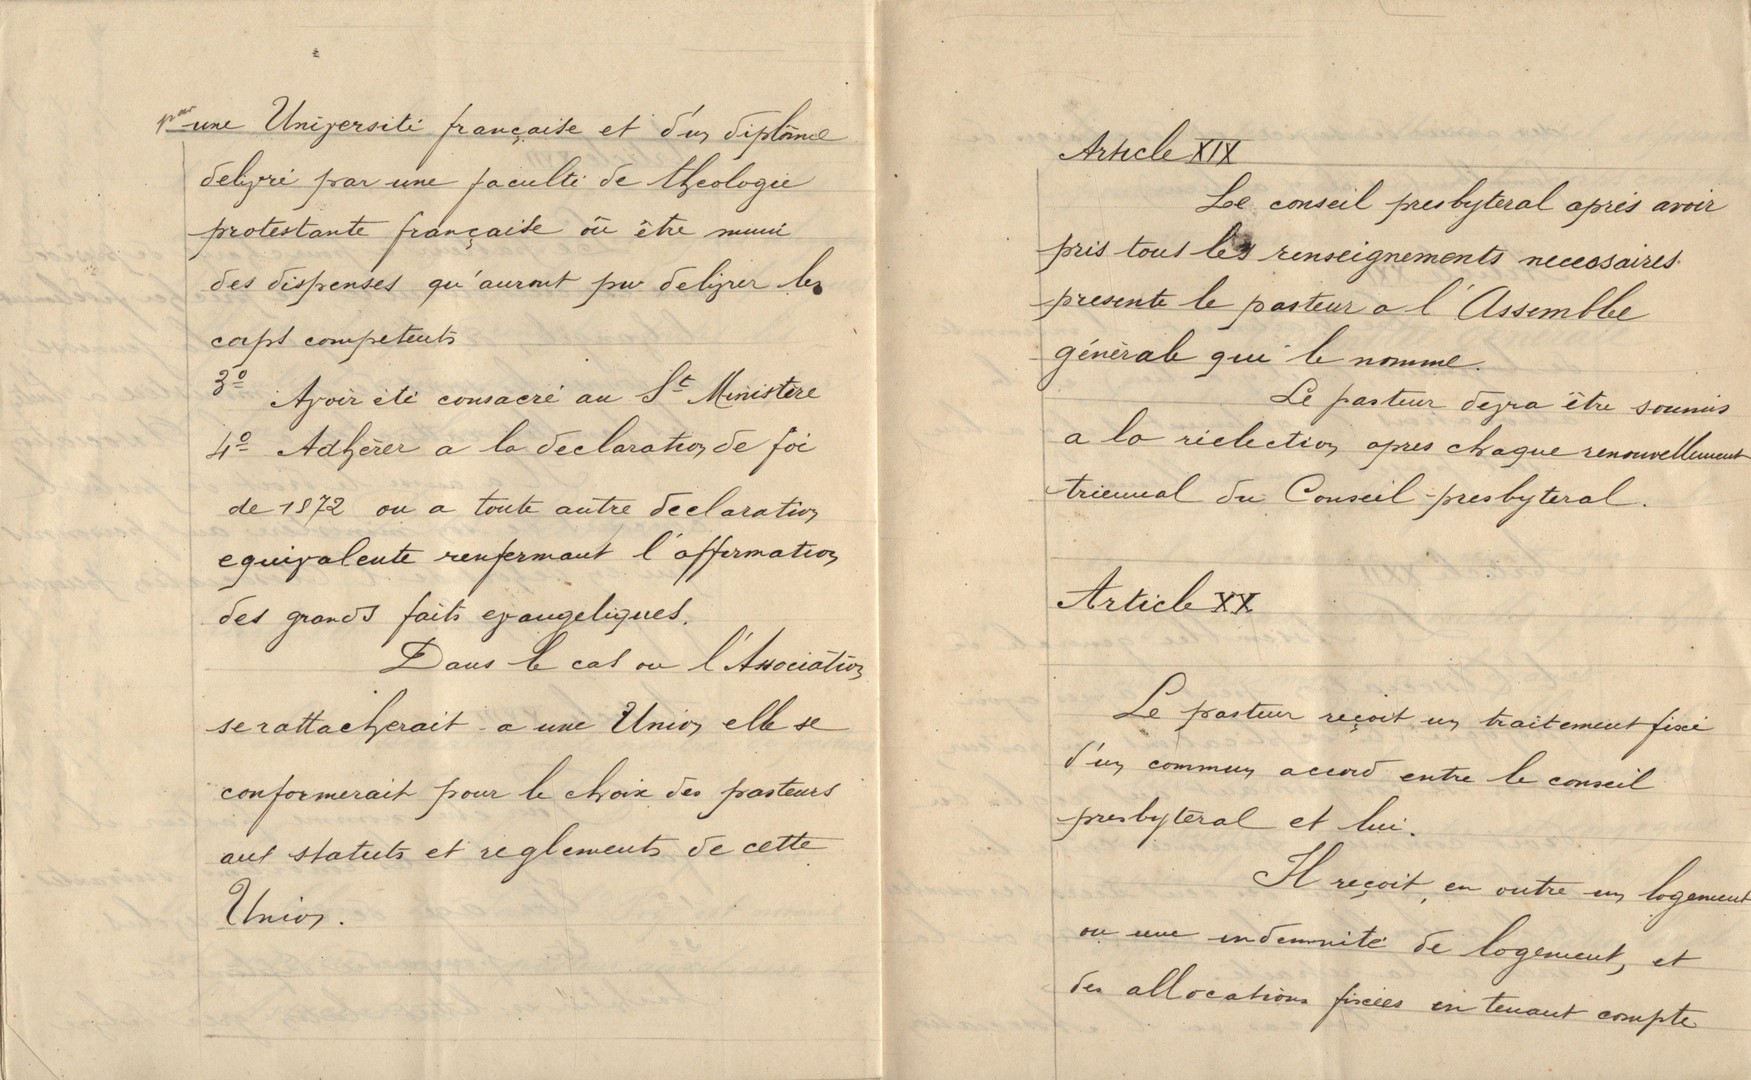 par une Université française et d'un diplôme
delivré par une faculté de théologie
protestante française ou être muni
des dispenses qu'auront pu delivrer les
corps competents
3º Avoir été consacré au St Ministère
4º Adhérer a la declaration de foi
de 1872 ou a toute autre declaration
equivalente renfermant l'affirmation
des grands faits evangeliques.
Dans le cas ou l'Association
se rattacherait a une Union elle se
conformerait pour le choix des pasteurs
aux statuts et reglements de cette
Union.
Article XIX
Le conseil presbyteral aprés avoir
pris tous les renseignements necessaires
presente le pasteur a l'Assemblee
générale qui le nomme.
Le pasteur devra être soumis
a la réelection apres chaque renouvellement
triennal du Conseil presbyteral.
Article XX
Le pasteur reçoit un traitement fixé
d'un commun accord entre le conseil
presbyteral et lui.
Il reçoit, en outre un logement
ou une indemnité de logement, et
des allocations fixées en tenant compte